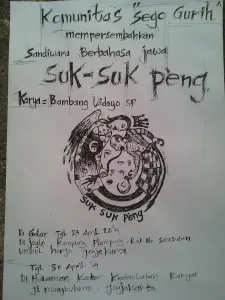 Komunitas "Sego Gurih"
mempersembahkan
Sandiwara Berbahasa jawa
SUK-SUK PENG
Karya = Bambang Widoyo SP
SUK SUK PENG
Di Gelar Tgl 23 April
Di joglo Kampung
Umbul harjo Jogjakarta
Tgl 30 April
Di Halaman Kedaulatan Rakyat
jl mangkubumi. Jogjakarta